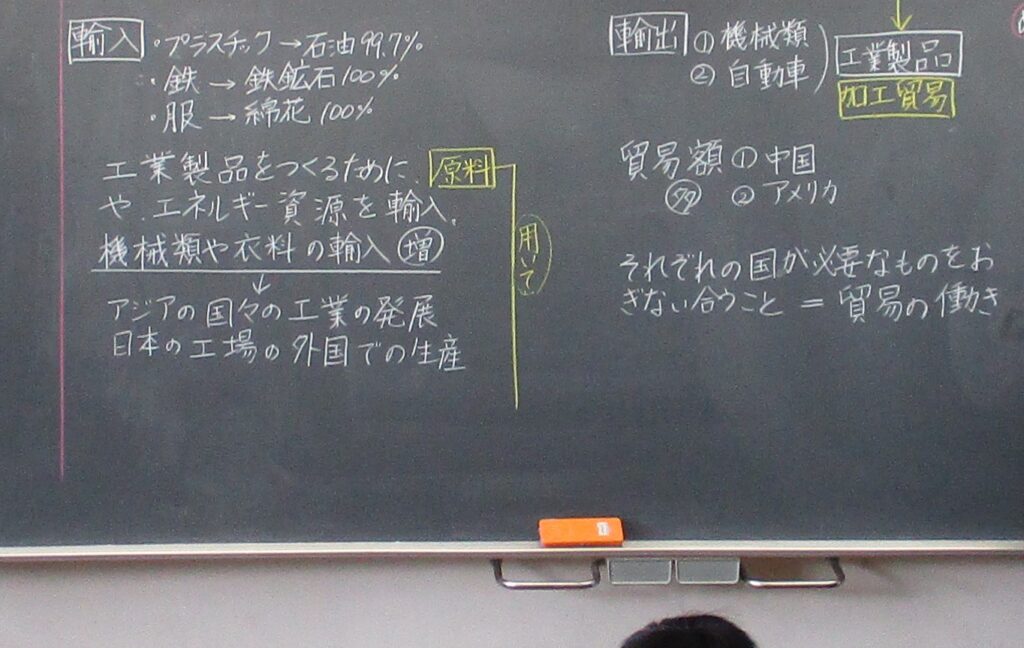 輸入 ・プラスチック→石油99.7%
・鉄→鉄鉱石100%
・服→綿花100%
工業製品をつくるために、原料
や、エネルギー資源を輸入。
機械類や衣料の輸入増
↓
アジアの国々の工業の発展
日本の工場の外国での生産
用いて
輸出 ①機械類
②自動車
工業製品
加工貿易
貿易額 ①中国
多 ②アメリカ
それぞれの国が必要なものをお
ぎない合うこと＝貿易の働き